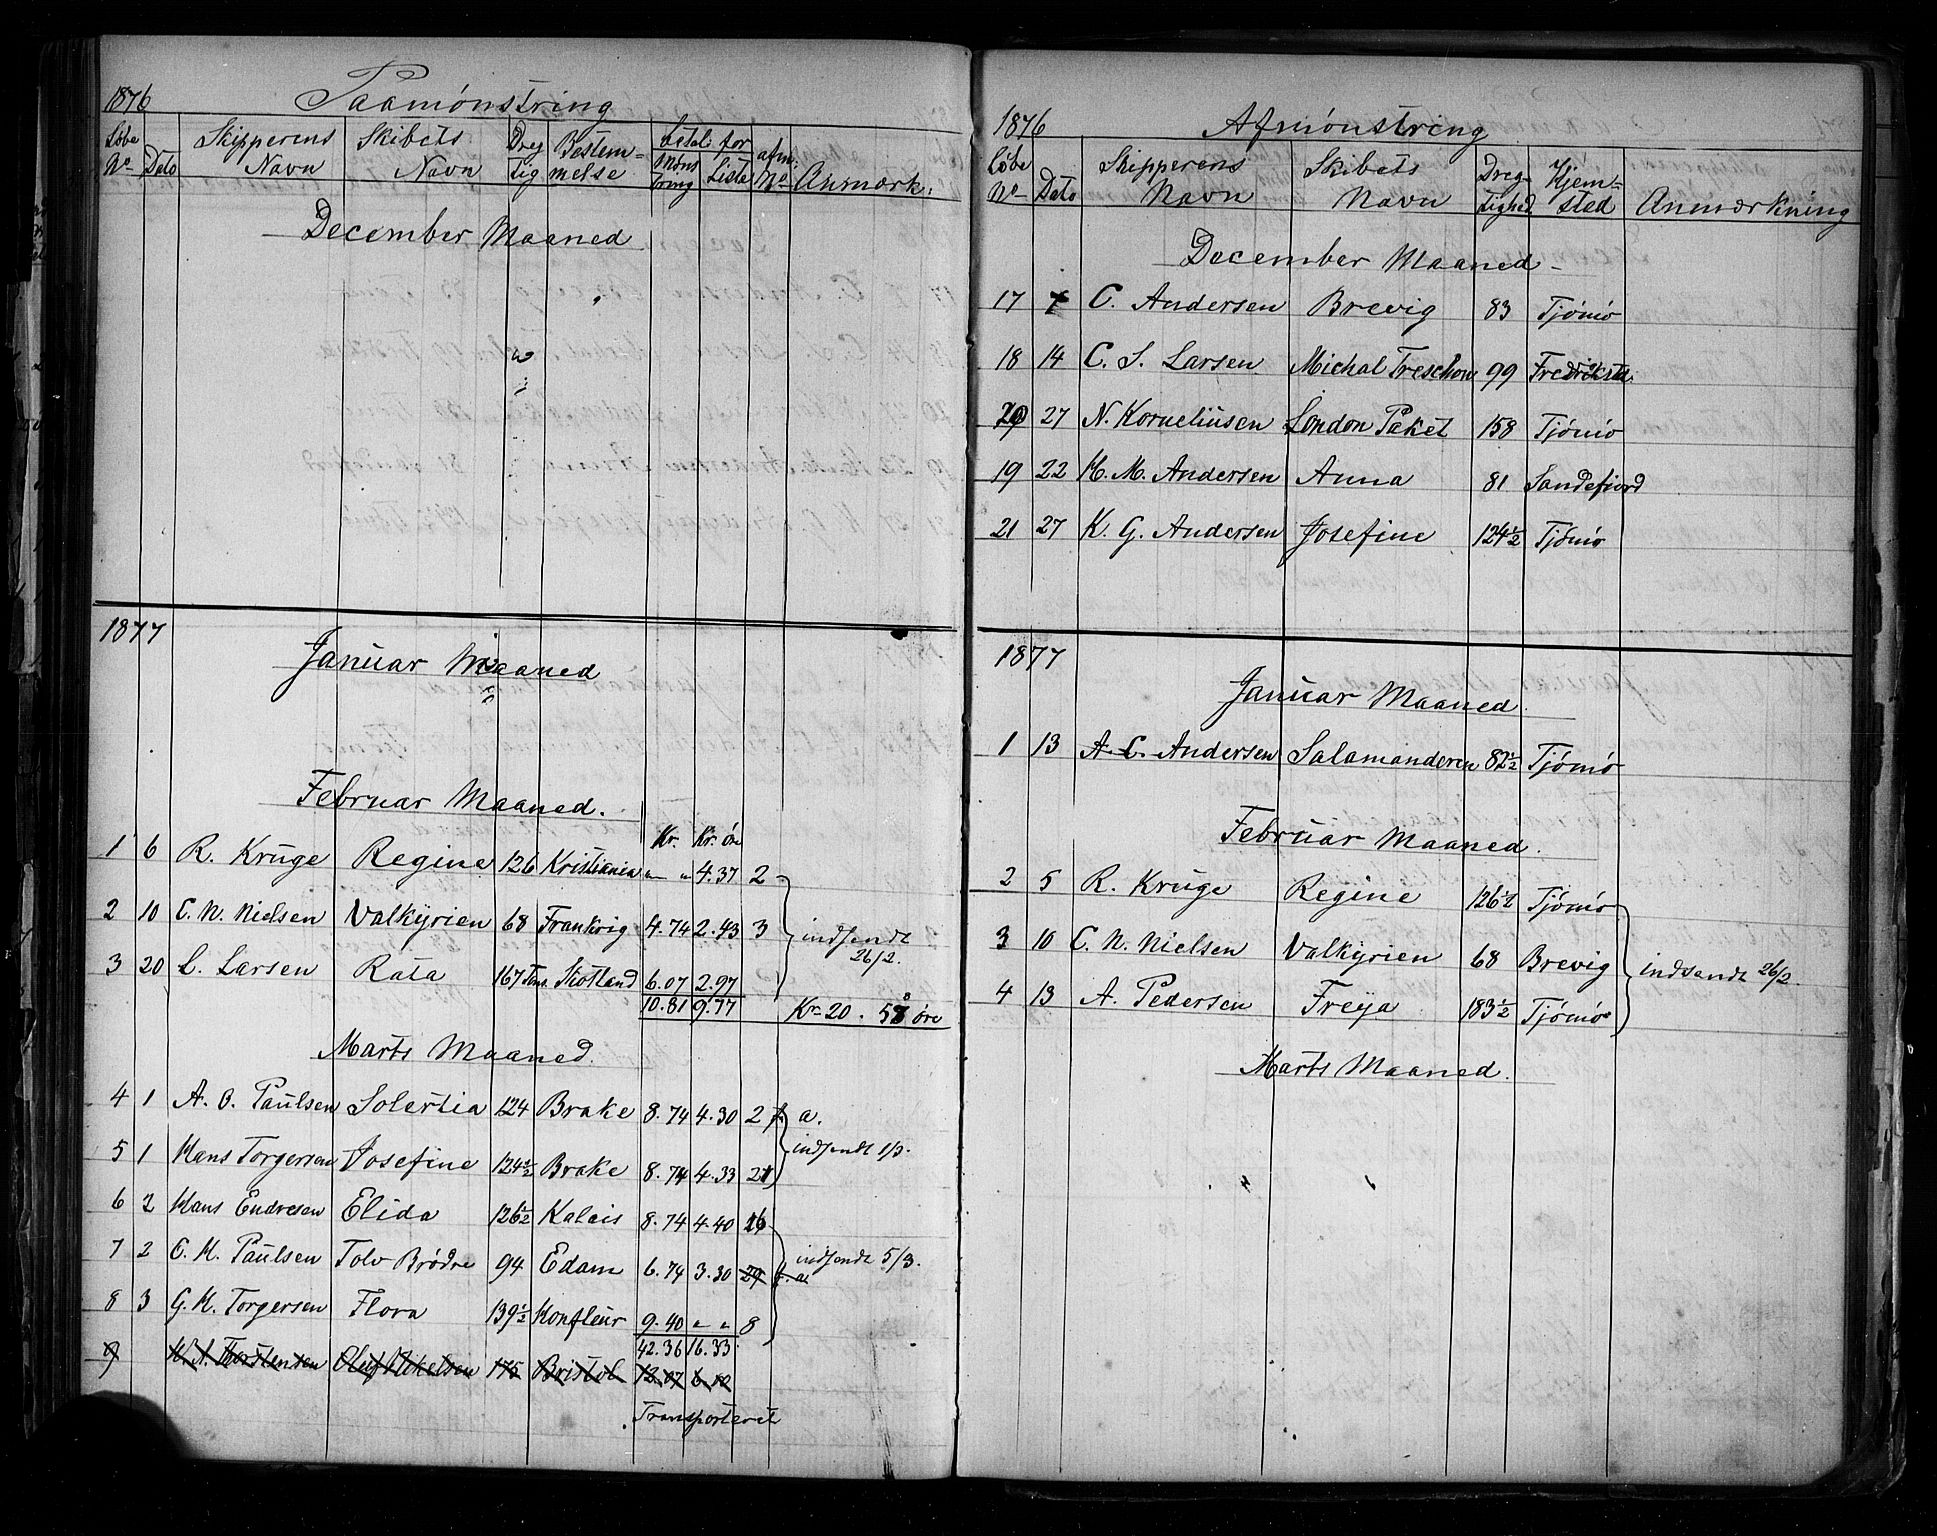 1876 Paamönstring
Löbe No Dato Skipperens Navn Skibets Navn Dreg tig Bestem= melse betal for Mönstring Liste afm. No Anmærk:
December Maaned
1877
Januar Maaned
Februar Maaned.
Kr. Kr. öre
1 6 R. Kruge Regine 126 Kristiania " " 4.37 2
2 10 C. N. Nielsen Valkyrien 68 Frankrig 4.74 2.43 3 indsendt 26/2.
3 20 L. Larsen Rata 167 Skotland 6.07 2.97
10.81 9.77 Kr 20. 58 öre
Marts Maaned.
4 1 A. O. Paulsen Solertia 124 Brake 8.74 4.30 2 f. a.
5 1 Hans Torgersen Josefine 124½ Brake 8.74 4.33 21 indsendt 1/3.
6 2 Hans Endresen Elida 126½ Kalais 8.74 4.40 16
7 2 C. H. Paulsen Tolv Brödre 94 Edam 6.74 3.30 29 f. a. indsendt 5/3.
8 3 G. H. Torgersen Flora 139½ Honfleur 9.40 " " 8
42.36 16.33
9 Oluf Mikelsen 175 Bristol 12.07
Transporteret
1876 Afmönstring
Löbe No Dato Skipperens Navn Skibets Navn Dreg- tighed Hjem= sted Anmærkning
December Maaned
17 7 C. Andersen Brevig 83 Tjömö
18 14 C. S. Larsen Michal Treschow 99 Fredriksta.
20 27 N. Korneliusen London Paket 158 Tjömö
19 22 H. M. Andersen Anna 81 Sandefiord
21 27 K. G. Andersen Josefine 124½ Tjömö
1877
Januar Maaned.
1 13 A. C. Andersen Salamanderen 82½ Tjömö
Februar Maaned.
2 5 R. Kruge Regine 126½ Tjömö
3 10 C. N. Nielsen Valkyrien 68 Brevig indsendt 26/2.
4 13 A. Pedersen Freya 183½ Tjömö
Marts Maaned.